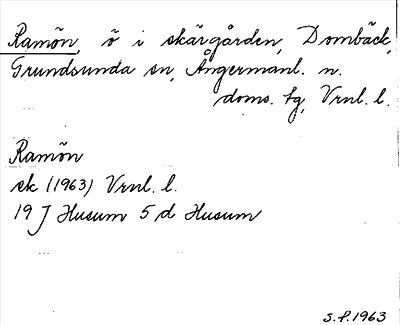 Ramön, ö i skärgården, Dombäck,
Grundsunda sn, Ångermanl. n.
doms. tg, Vrnl. l.
Ramön
ek (1963) Vrnl. l.
19 J Husum 5 d Husum
S.f. 1963